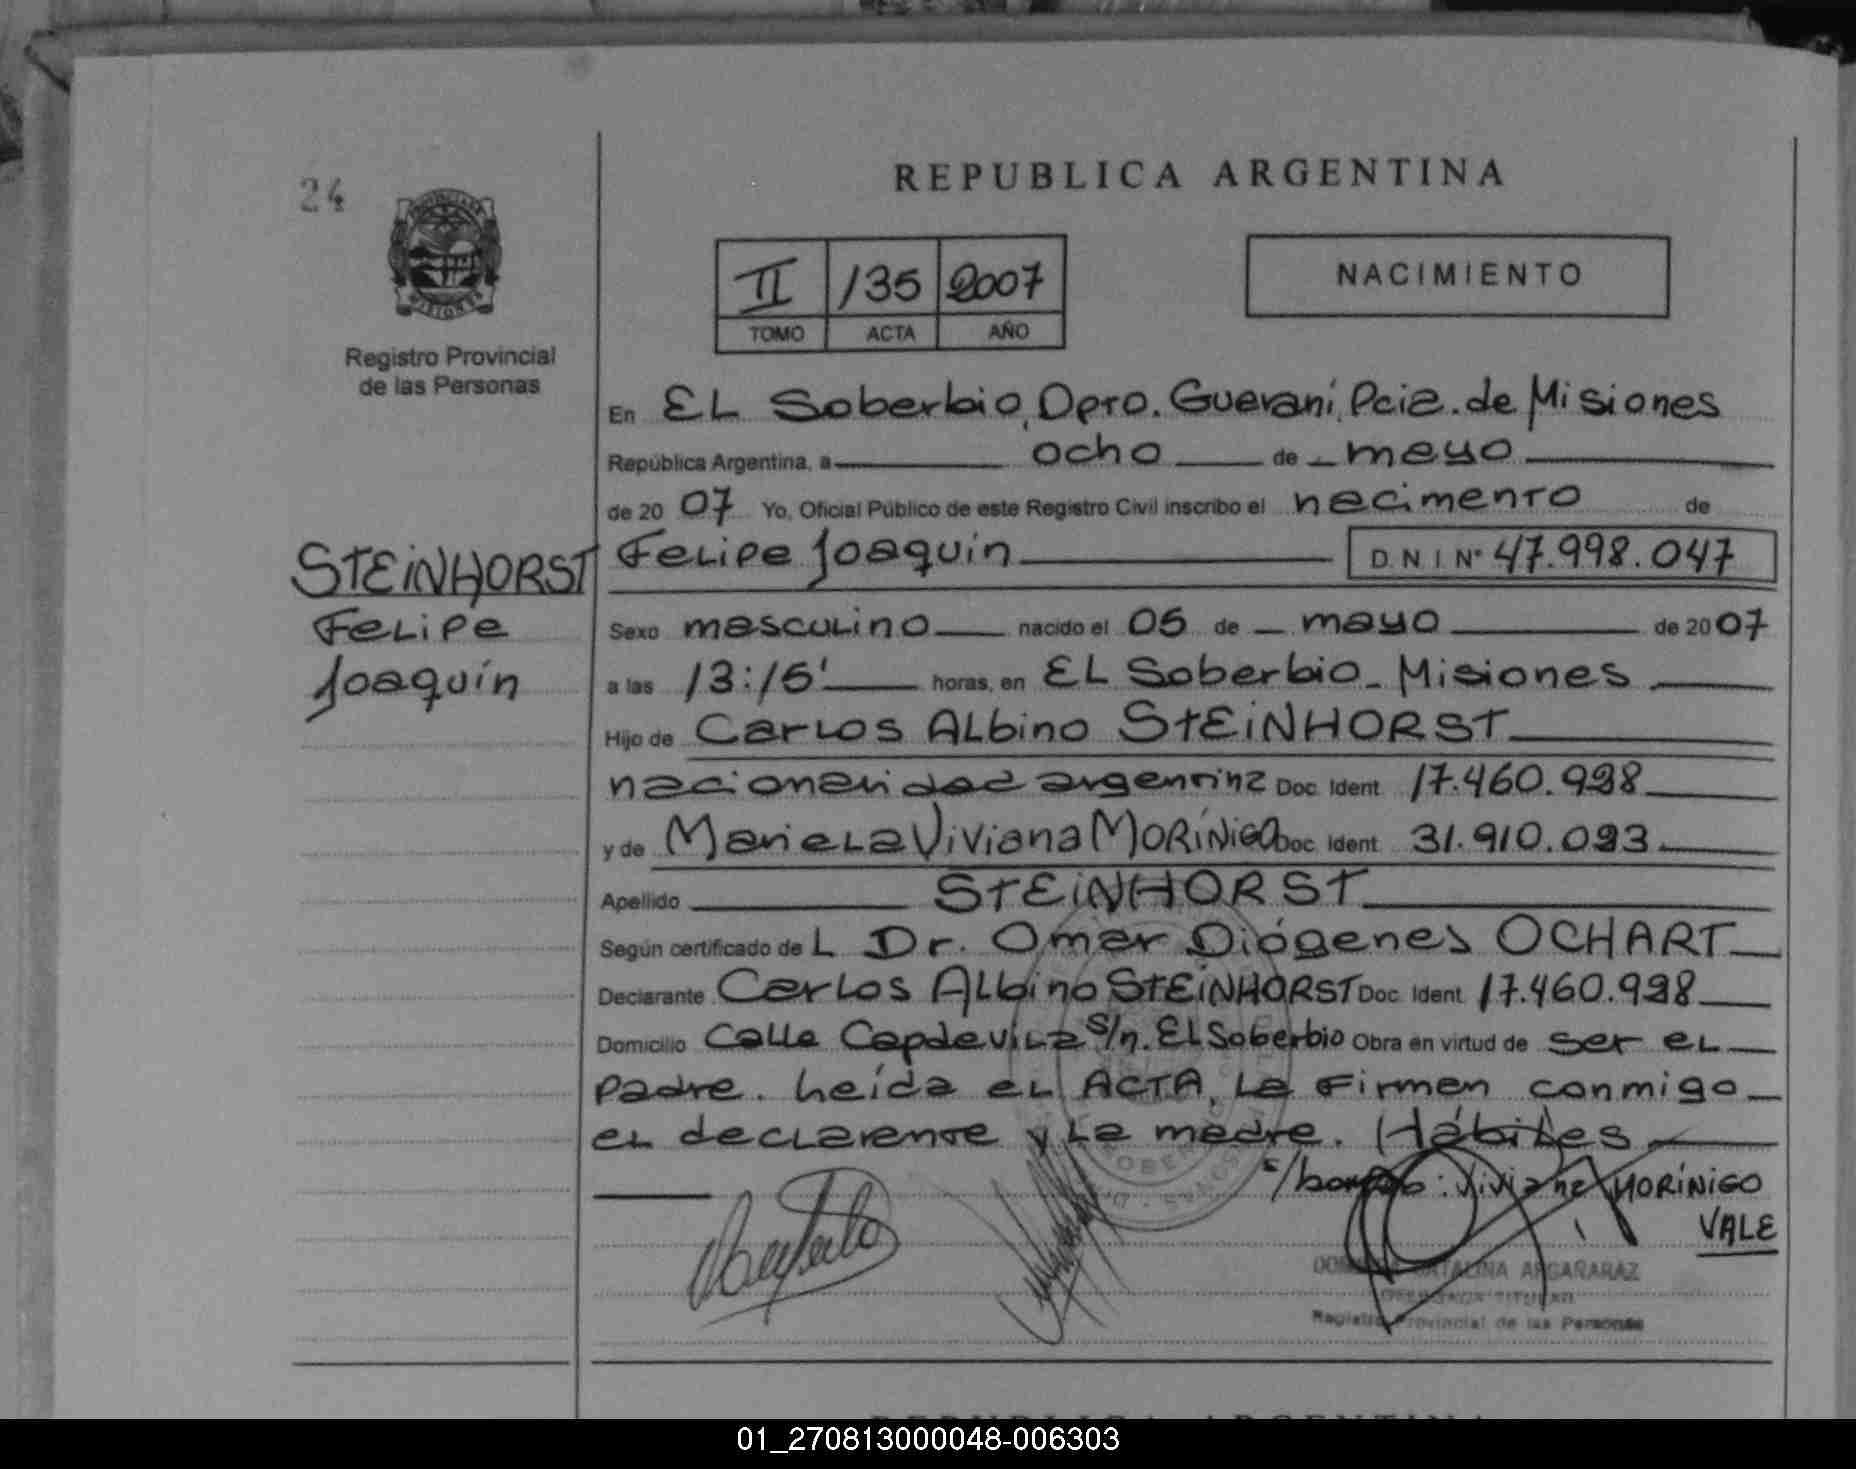 24
REPUBLICA ARGENTINA
II 135 2007
TOMO ACTA AÑO
NACIMIENTO
Registro Provincial
de las Personas
En EL Soberbio, Dpto. Guaraní, Pcia. de Misiones
República Argentina, a ocho de mayo
de 2007 Yo, Oficial Público de este Registro Civil inscribo el nacimento de
STEINHORST
Felipe
Joaquín
Felipe Joaquín D.N.I. Nº 47.998.047
Sexo masculino nacido el 05 de mayo de 2007
a las 13:15' horas, en EL Soberbio - Misiones
Hijo de Carlos Albino STEINHORST
nacionalidad argentina Doc. Ident. 17.460.998
y de Mariela Viviana MORÍNIGO Doc. Ident. 31.910.093
Apellido STEINHORST
Según certificado de L Dr. Omar Diógenes OCHART
Declarante Carlos Albino STEINHORST Doc. Ident. 17.460.998
Domicilio Calle Capdevila s/n. El Soberbio Obra en virtud de ser el
padre. Leída el ACTA, la firman conmigo
el declarante y la madre. Hábiles
s/borrado: Viviana MORÍNIGO
VALE
CATALINA ARGAÑARAZ
TITULAR
Registro Provincial de las Personas
REPUBLICA ARGENTINA
01_270813000048-006303